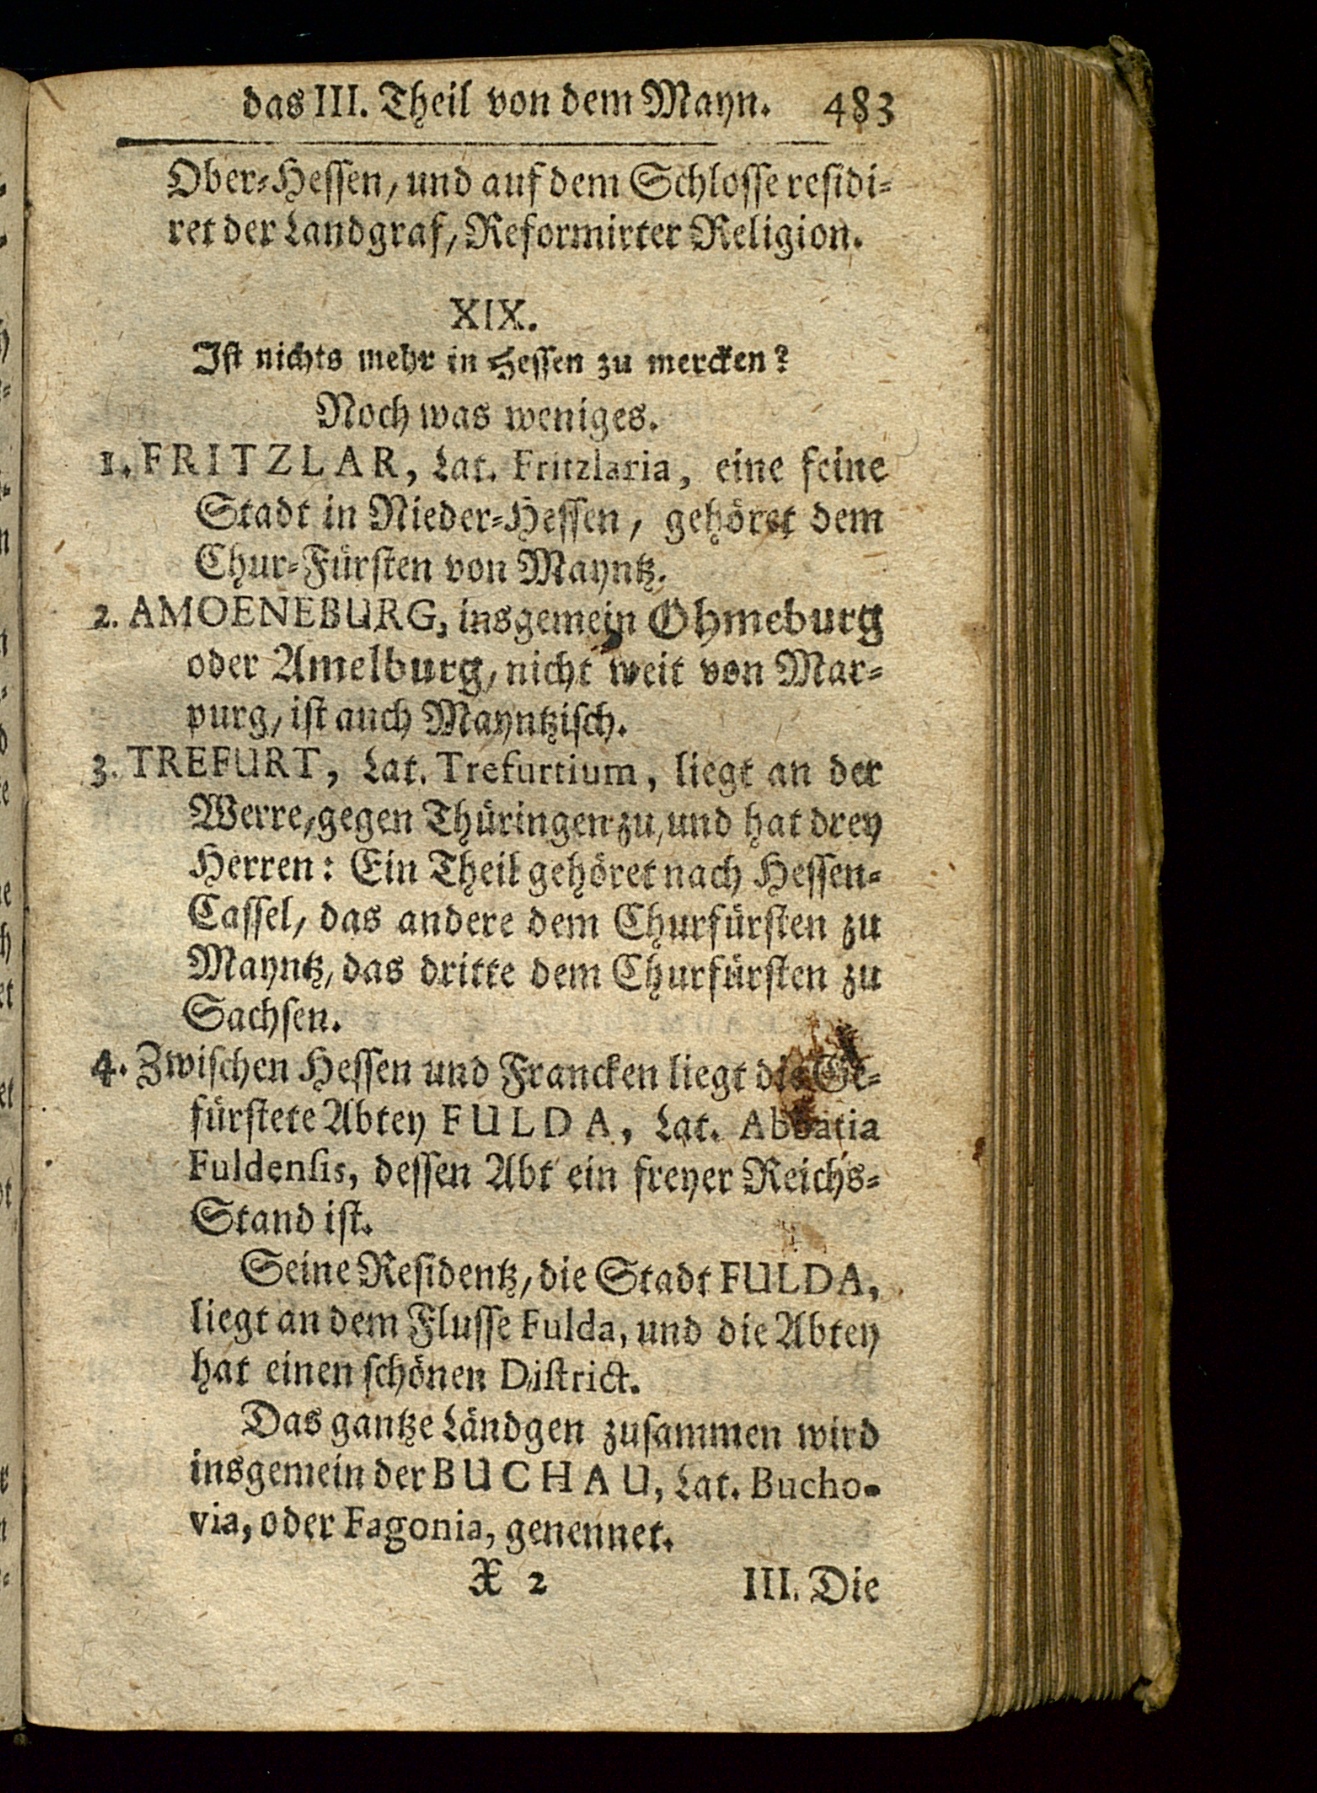 das III. Theil von dem Mayn. 483
Ober-Hessen, und auf dem Schlosse residi-
ret der Landgraf, Reformirter Religion.
XIX.
Ist nichts mehr in Hessen zu mercken?
Noch was weniges.
1. FRITZLAR, Lat. Fritzlaria, eine feine
Stadt in Nieder-Hessen, gehöret dem
Chur-Fürsten von Mayntz.
2. AMOENEBURG, insgemein Ohmeburg
oder Amelburg, nicht weit von Mar-
purg, ist auch Mayntzisch.
3. TREFURT, Lat. Trefurtium, liegt an der
Werre, gegen Thüringen zu, und hat drey
Herren: Ein Theil gehöret nach Hessen-
Cassel, das andere dem Churfürsten zu
Mayntz, das dritte dem Churfürsten zu
Sachsen.
4. Zwischen Hessen und Francken liegt die Ge-
fürstete Abtey FULDA, Lat. Abbatia
Fuldensis, dessen Abt ein freyer Reichs-
Stand ist.
Seine Residentz, die Stadt FULDA,
liegt an dem Flusse Fulda, und die Abtey
hat einen schönen District.
Das gantze Ländgen zusammen wird
insgemein der BUCHAU, Lat. Bucho-
via, oder Fagonia, genennet.
X 2 III. Die